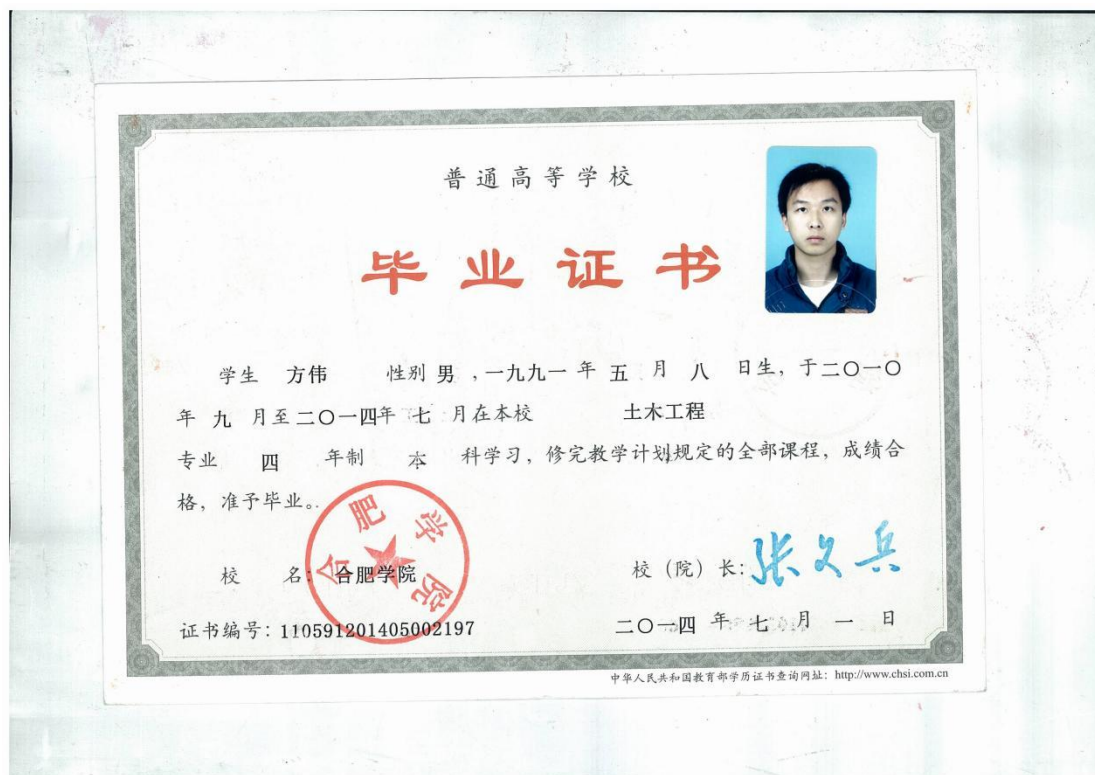 普通高等学校
毕业证书
学生 方伟 性别 男 ,一九九一 年 五 月 八 日生, 于二〇一〇
年 九 月至二〇一四年 七 月在本校 土木工程
专业 四 年制 本 科学习, 修完教学计划规定的全部课程, 成绩合
格, 准予毕业。
合肥学院
校 名: 合肥学院 校（院）长: 张文兵
证书编号: 110591201405002197 二〇一四 年 七 月 一 日
中华人民共和国教育部学历证书查询网址: http://www.chsi.com.cn